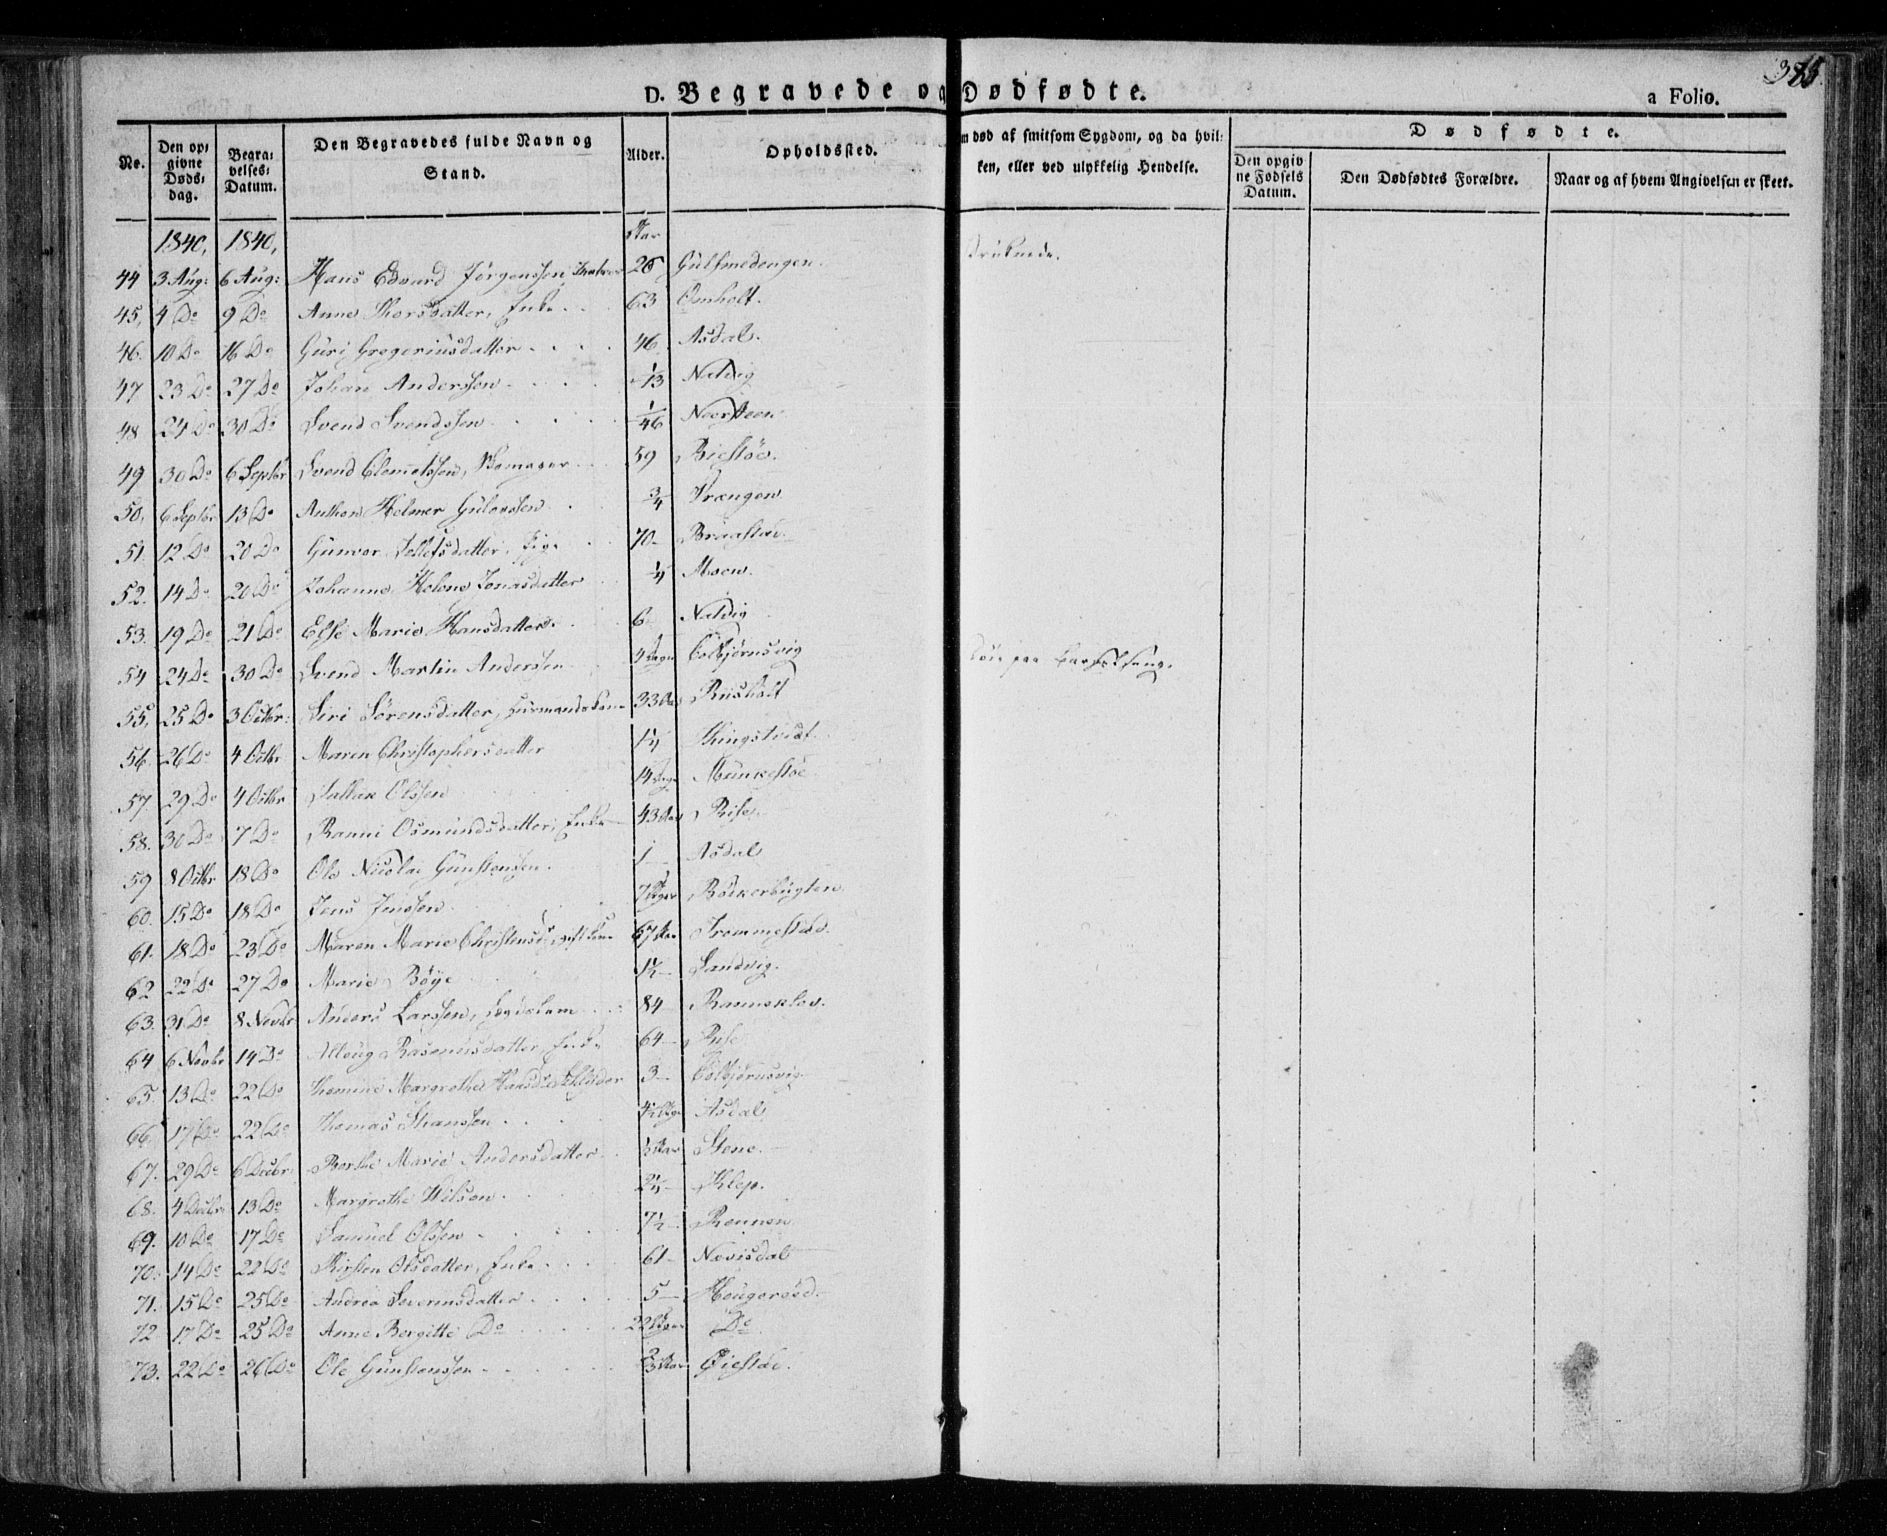 D. Begravede og Dødfødte.
a Folio.
No.
Den opgivne Dødsdag.
Begravelses-Datum.
Den Begravedes fulde Navn og Stand.
Alder.
Opholdssted.
m død af smitsom Sygdom, og da hvilken, eller ved ulykkelig Hendelse.
Dødfødte.
Den opgivne Fødsels Datum.
Den Dødfødtes Forældre.
Naar og af hvem Angivelsen er skeet.
1840, 1840, Aar
44 3 Aug: 6 Aug: Hans Edvard Jørgenssen 26 Gulsmedengen.
45, 4 Do 9 Do Anne Thorsdatter, Enke 63 Omholt.
46. 10 Do 16 Do Guri Gregeriusdatter 46 Asdal.
47 23 Do 27 Do Johan Anderssen 1/13 Natvig
48 24 Do 30 Do Svend Svendssen 1/46 Neersteen
49 30 Do 6 Septbr Svend Clemetssen, 59 Biestøe.
50, 6 Septbr 13 Do Anthon Helmer 3/4 Vrængen
51. 12 Do 20 Do Gunvor Tellefsdatter, Pige 70 Braastad
52. 14 Do 20 Do Johanne Helene Jonasdatter 1/4 Moen.
53. 19 Do 21 Do Else Marie Hansdatter 6 Natvig
54 24 Do 30 Do Svend Martin Anderssen 4 Dage Colbjørnsvig
55, 25 Do 3 Octbr: Siri Sørensdatter, Huusmandskone 33 Aar Riisholt Døde paa Barselseng.
56. 26 Do 4 Octbr Maren Christophersdatter 1/4 Thingstveit
57. 29 Do 4 Octbr Olssen 14 Dage Munkestøe
58. 30 Do 7 Do Ranni Osmundsdatter, Enke 43 Aar Rise
59 8 Octbr 18 Do Ole Nicolai Gunstensen. 1 Asdal
60. 15 Do 18 Do Jens Jenssen 7 Uger Bøckerbugten
61. 18 Do 23 Do Maren Marie Christensdr, gift Kone 67 Aar Frommestad.
62 22 Do 27 Do Marie Bøye 1 1/2 Sandvig.
63. 31 Do 8 Novbr Anders Larssen, Lægdslem 84 Ravneklev.
64 6 Novbr 14 Do Rasmusdatter, Enke 64 Rise
65. 13 Do 22 Do Thomine Margrethe Hansdr 3 Colbjørnsvig
66. 17 Do 22 Do Thomas 4 1/2 Asdal
67. 29 Do 6 Decbr Berthe Marie Andersdatter Aar Stene.
68. 4 Decbr 13 Do Margrethe Nilsen Klep.
69. 10 Do 17 Do Samuel Olssen 7 1/2 Rennen
70. 14 Do 22 Do Kirsten Olsdatter, Enke 61 Nævisdal
71. 15 Do 25 Do Andrea Severinsdatter 5 Hougerød.
72 17 Do 25 Do Anne Bergitte Do 22 Do
73. 22 Do 26 Do Ole Gunstenssen Aar Øiestad.